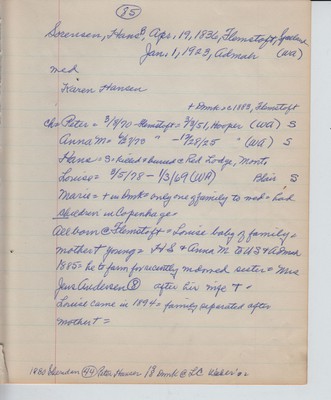 85
Sorensen, Hans B, Apr. 19, 1836, Flemstoft,
Jan. 1, 1923, Admah (WA)
med
Karen Hansen
+ Dmk c 1883, Flemstoft
ch = Peter = 3/3/70 - Flemstoft = 3/3/51, Hooper (WA) S
Anna M = 6/27/73 " - 12/28/25 " (WA) S
Hans = S = killed & buried @ Red Lodge, Mont.
Louise = 8/5/78 - 1/3/69 (WA) Blair S
Marie = + in Dmk = only one of family to wed = had
children in Copenhage =
All born @ Flemstoft = Louise baby of family =
mother + young = H S & Anna M to U.S. & Admah
1885 = he to farm for recently widowed sister = Mrs
Jens Andersen after his wife + -
Louise came in 1894 = family separated after
mother + =
1880 44 Peter 18 Dmk @ LC